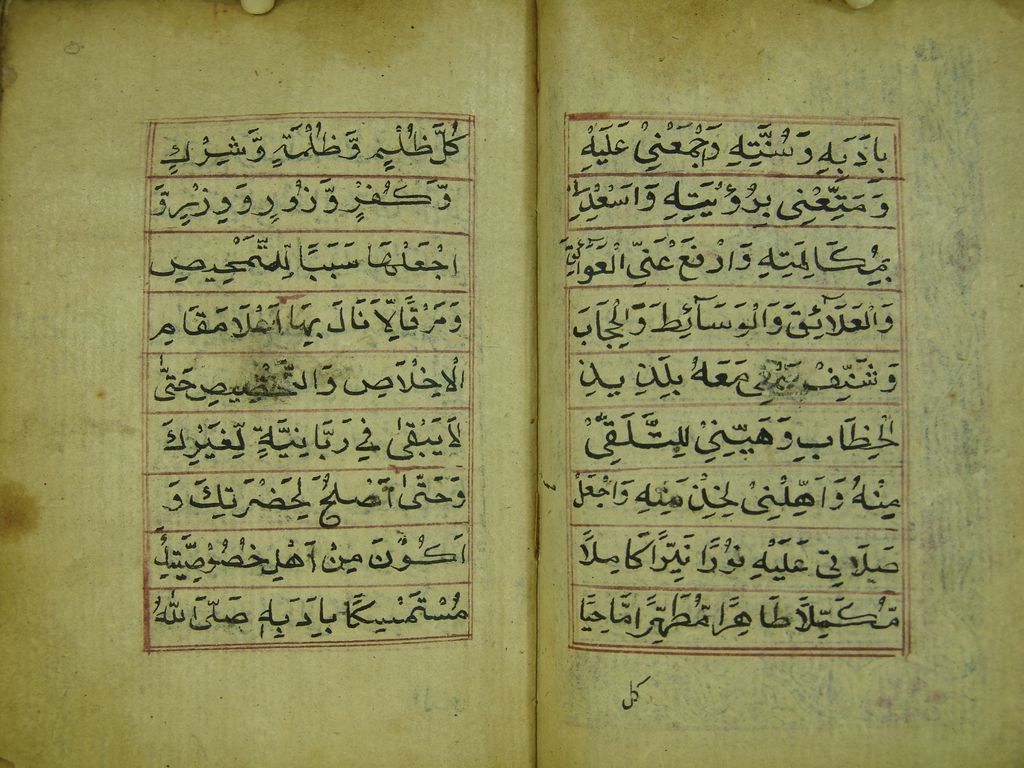 بِاَدَبِهِ وَسُنَّتِهِ وَاجْمَعْنِىْ عَلَيْهِ
وَمَتِّعْنِى بِرُؤْيَتِهِ وَاَسْعِدْنِىْ
بِمُكَالَمَتِهِ وَارْفَعْ عَنِّى الْعَوَآئِقَ
وَالْعَلَآئِقَ وَالْوَسَآئِطَ وَالْحِجَابَ
وَشَنِّفْ سَمْعِى مَعَهُ بِلَذِيذِ
الْخِطَابِ وَهَيِّئْنِىْ لِلتَّلَقِّىْ
مِنْهُ وَاَهِّلْنِىْ لِخِدْمَتِهِ وَاجْعَلْ
صَلَاتِىْ عَلَيْهِ نُوْرًا نَيِّرًا كَامِلًا
مُّكَمِّلًا طَاهِرًا مُّطَهِّرًا مَّاحِيًا
كل
كُلَّ ظُلْمٍ وَّظُلْمَةٍ وَّشِرْكٍ
وَّكُفْرٍ وَّزُوْرٍ وَّوِزْرٍ وَّ
اجْعَلْهَا سَبَبًا لِّلتَّمْحِيصِ
وَمَرْقًا لِّاَنَالَ بِهَا اَعْلَا مَقَامِ
الْاِخْلَاصِ وَالتَّخْصِيصِ حَتّٰى
لَا يَبْقٰى فِيَّ رَبَّانِيَّةٌ لِّغَيْرِكَ
وَحَتّٰى اَصْلُحَ لِحَضْرَتِكَ وَ
اَكُوْنَ مِنْ اَهْلِ خُصُوْصِيَّتِكَ
مُسْتَمْسِكًا بِاَدَبِهِ صَلَّى اللّٰهُ